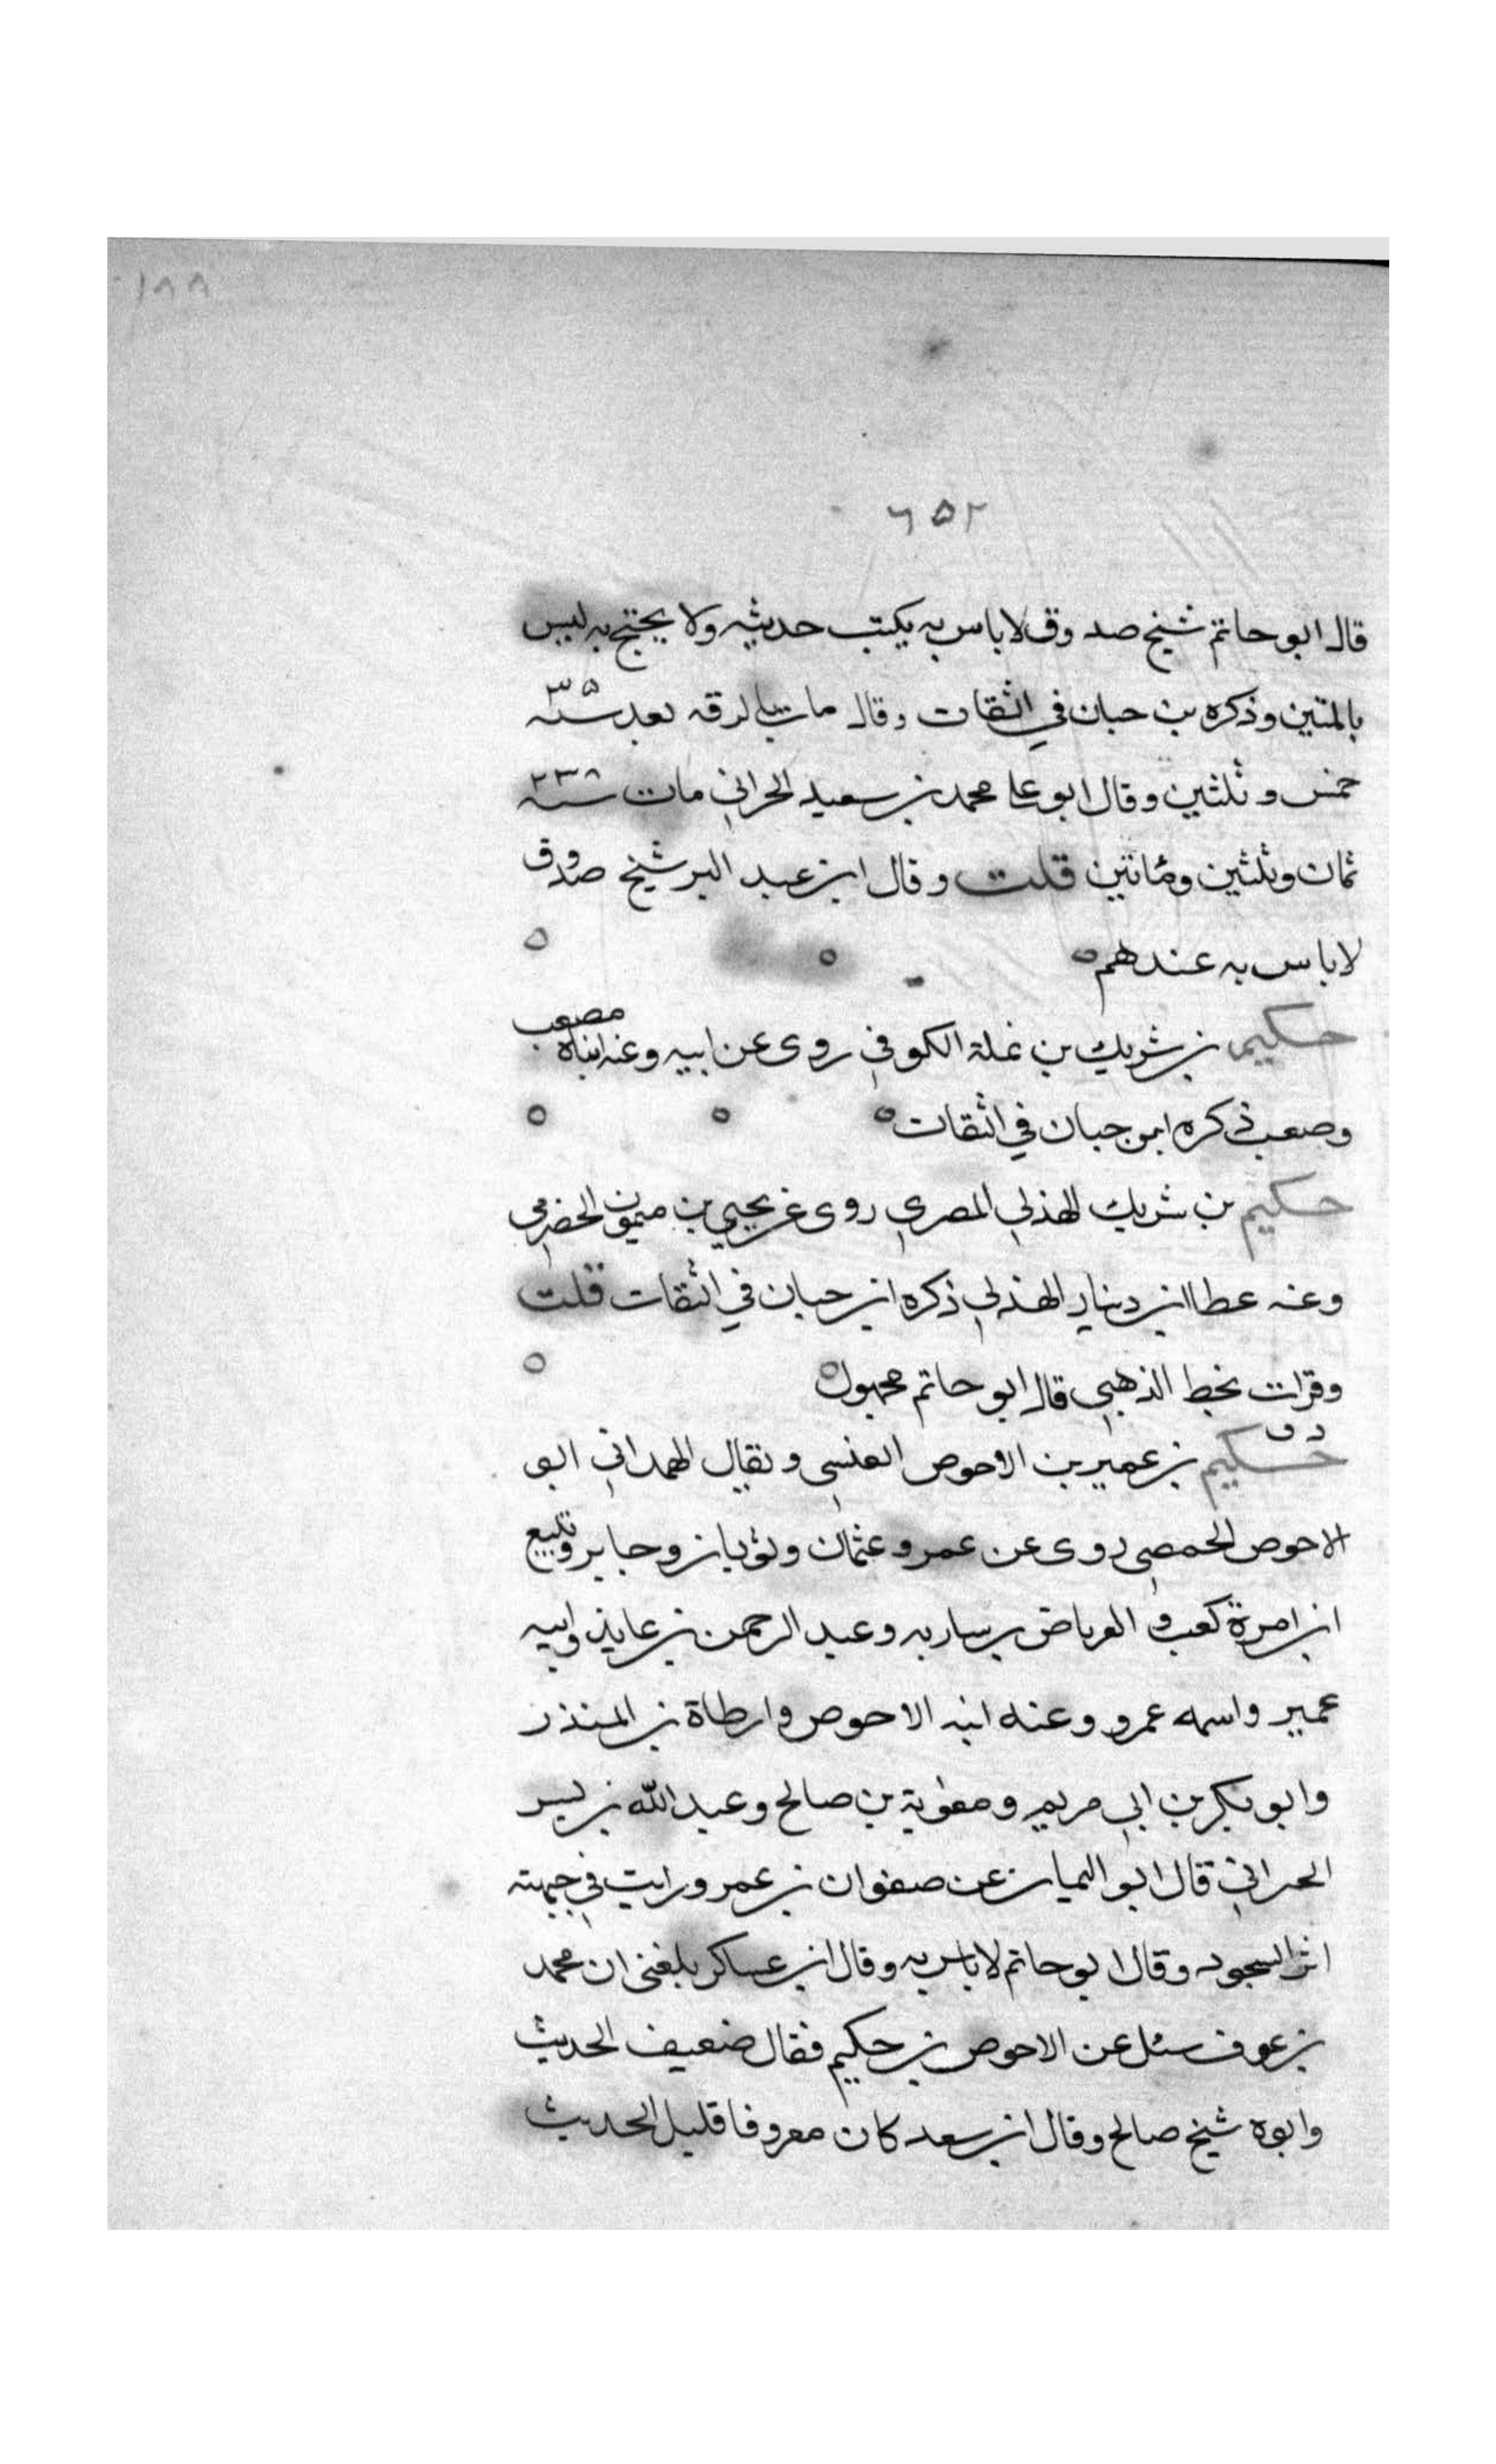 ١٨٨
٦٥٢
قال ابو حاتم شيخ صدوق لا باس به يكتب حديثه ولا يحتج به ليس
بالمتين وذكره بن حبان في الثقات وقال مات بالرقه بعد سنه ٣٥
خمس وثلثين وقال ابو علي محمد بن سعيد الحراني مات سنه ٢٣٨
ثمان وثلثين ومائتين قلت وقال ابن عبد البر شيخ صدوق
لا باس به عندهم
حكيم بن شريك بن نملة الكوفي روى عن ابيه وعنه ابناه مصعب
وصعب ذكره ابن حبان في الثقات
حكيم بن شريك الهذلي المصري روى عن يحيي بن ميمون الحضرمي
وعنه عطا ابن دينار الهذلي ذكره ابن حبان في الثقات قلت
وقرات بخط الذهبي قال ابو حاتم مجهول
د ق
حكيم بن عمير بن الاحوص العنسي ويقال الهمداني ابو
الاحوص الحمصي روى عن عمر وعثمان وثوبان وجابر وتبيع
ابن امرة كعب و العرباض بن ساريه وعبد الرحمن بن عايذ وابيه
عمير واسمه عمرو وعنه ابنه الاحوص وارطاة بن المنذر
وابو بكر بن ابي مريم ومعوية بن صالح وعبد الله بن بسر
الحراني قال ابو اليمان عن صفوان بن عمرو رايت في جبهته
اثر السجود وقال ابو حاتم لا باس به وقال ابن عساكر بلغني ان محمد
بن عوف سئل عن الاحوص بن حكيم فقال ضعيف الحديث
وابوه شيخ صالح وقال ابن سعد كان معروفا قليل الحديث